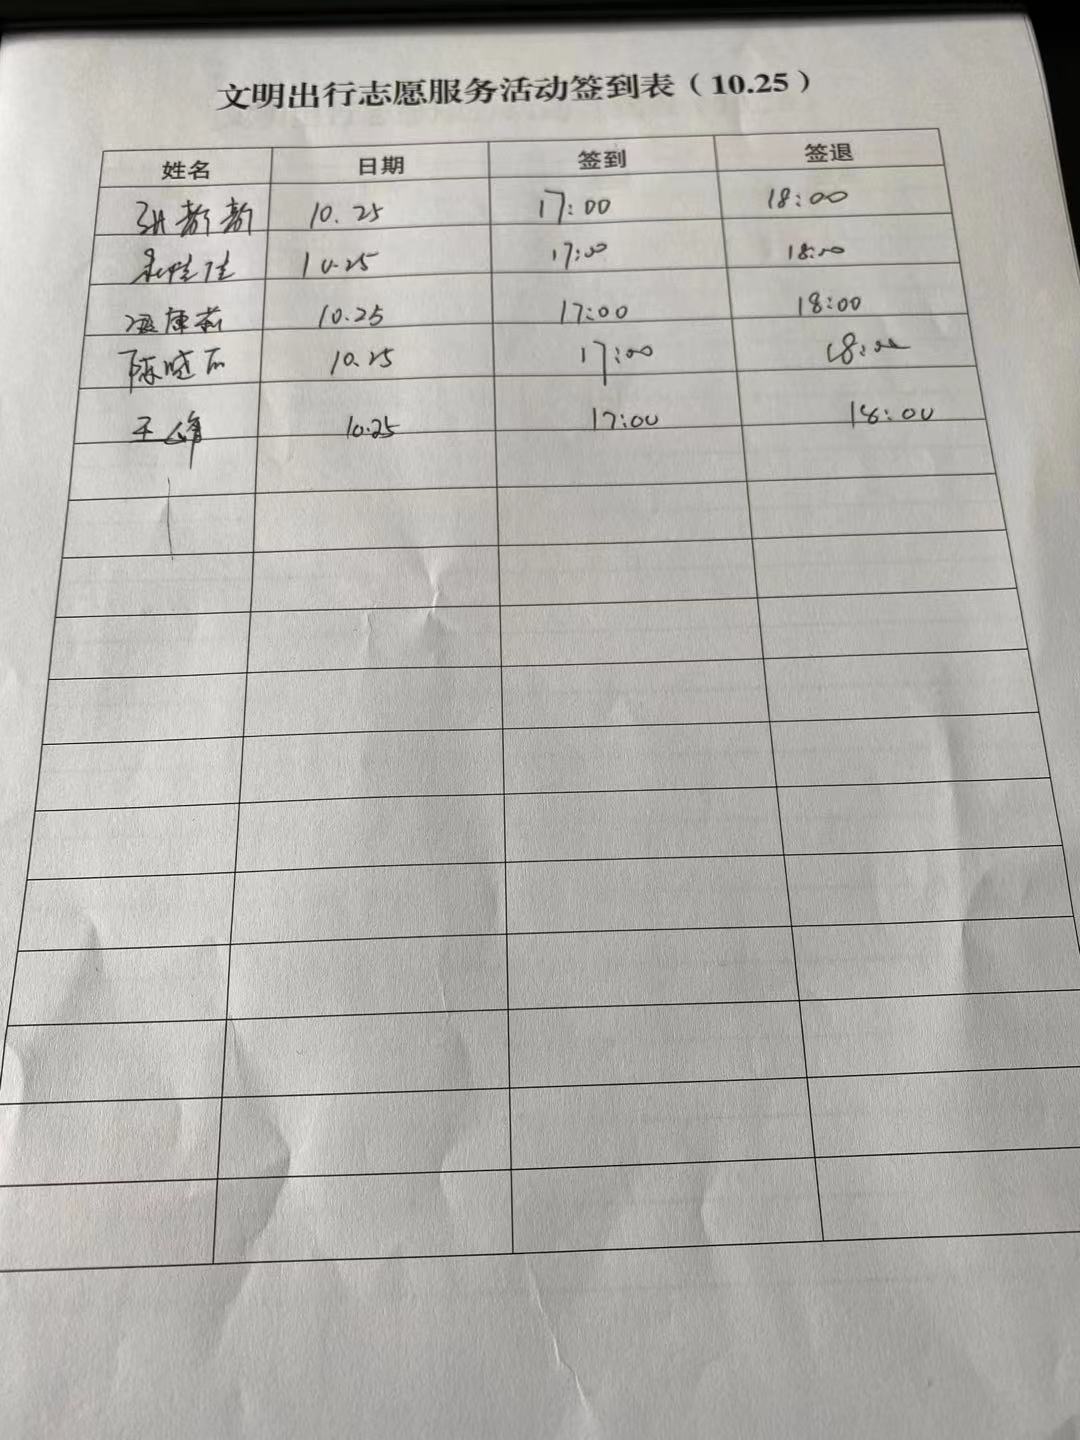 文明出行志愿服务活动签到表（10.25）
姓名 日期 签到 签退
10.25 17:00 18:00
10.25 17:00 18:00
10.25 17:00 18:00
陈晓 10.25 17:00 18:00
王峰 10.25 17:00 18:00